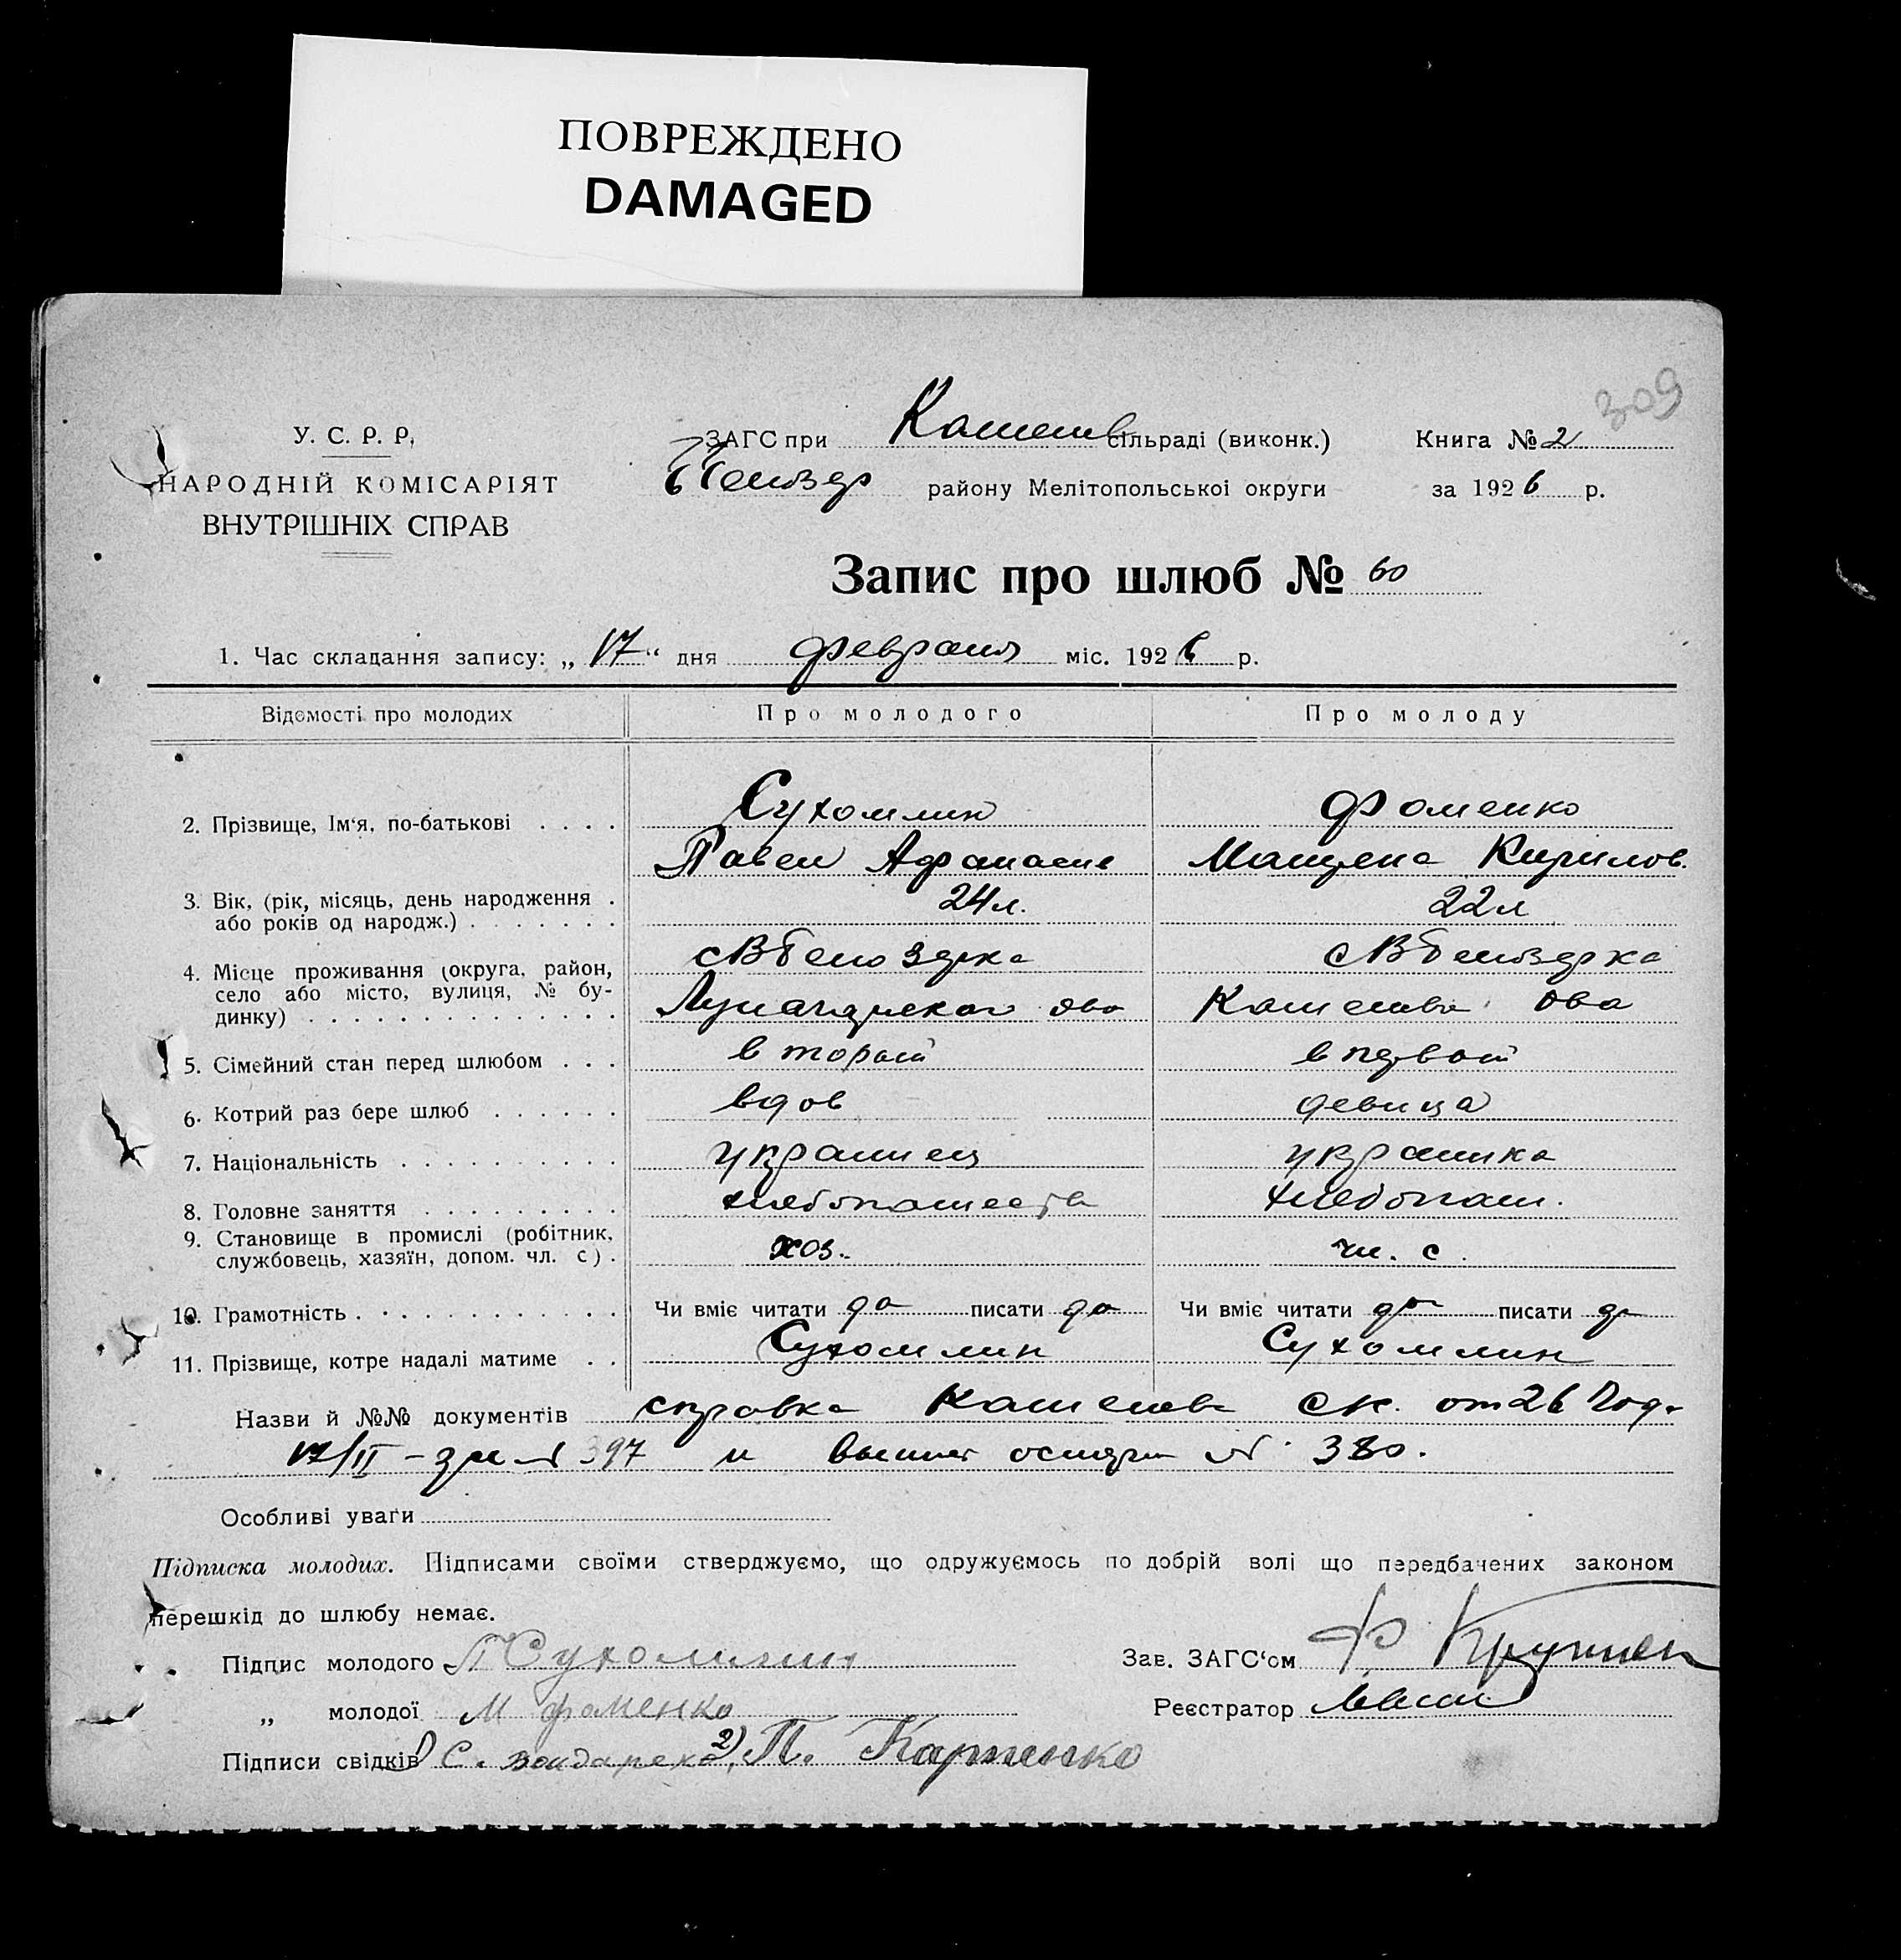 ПОВРЕЖДЕНО
DAMAGED
309
У. С. Р. Р.
НАРОДНІЙ КОМІСАРІЯТ
ВНУТРІШНІХ СПРАВ
ЗАГС при сільраді (виконк.) Книга № 2
району Мелітопольської округи за 1926 р.
Запис про шлюб № 60
1. Час складання запису: „ 17 “ дня февраля міс. 1926 р.
Відомості про молодих Про молодого Про молоду
2. Прізвище, Ім'я, по-батькові . . . . Сухомлин Фоменко
Павел Афанасие Кирилов.
3. Вік, (рік, місяць, день народження . 24 л. 22 л
або років од народж.) . . . . . . .
4. Місце проживання (округа, район, с В Белозерка с В Белозерка
село або місто, вулиця, № бу-
динку) . . . . . . . . . . . . . . ова ова
5. Сімейний стан перед шлюбом . . . второй в первой
6. Котрий раз бере шлюб . . . . . . вдов девица
7. Національність . . . . . . . . . . украинец украинка
8. Головне заняття . . . . . . . . . хлебопашеств хлебопаш.
9. Становище в промислі (робітник,
службовець, хазяїн, допом. чл. с) . хоз. чл. с.
10. Грамотність . . . . . . . . . . . Чи вміє читати да писати да Чи вміє читати да писати да
11. Прізвище, котре надалі матиме . . Сухомлин Сухомлин
Назви й №№ документів справка от 26 год
17/II – 397 и № 380.
Особливі уваги
Підписка молодих. Підписами своїми стверджуємо, що одружуємось по добрій волі що передбачених законом
перешкід до шлюбу немає.
Підпис молодого П Сухомлин Зав. ЗАГС'ом
„ молодої М Фоменко Реєстратор
Підписи свідків 1) С. 2) П. Карпенко